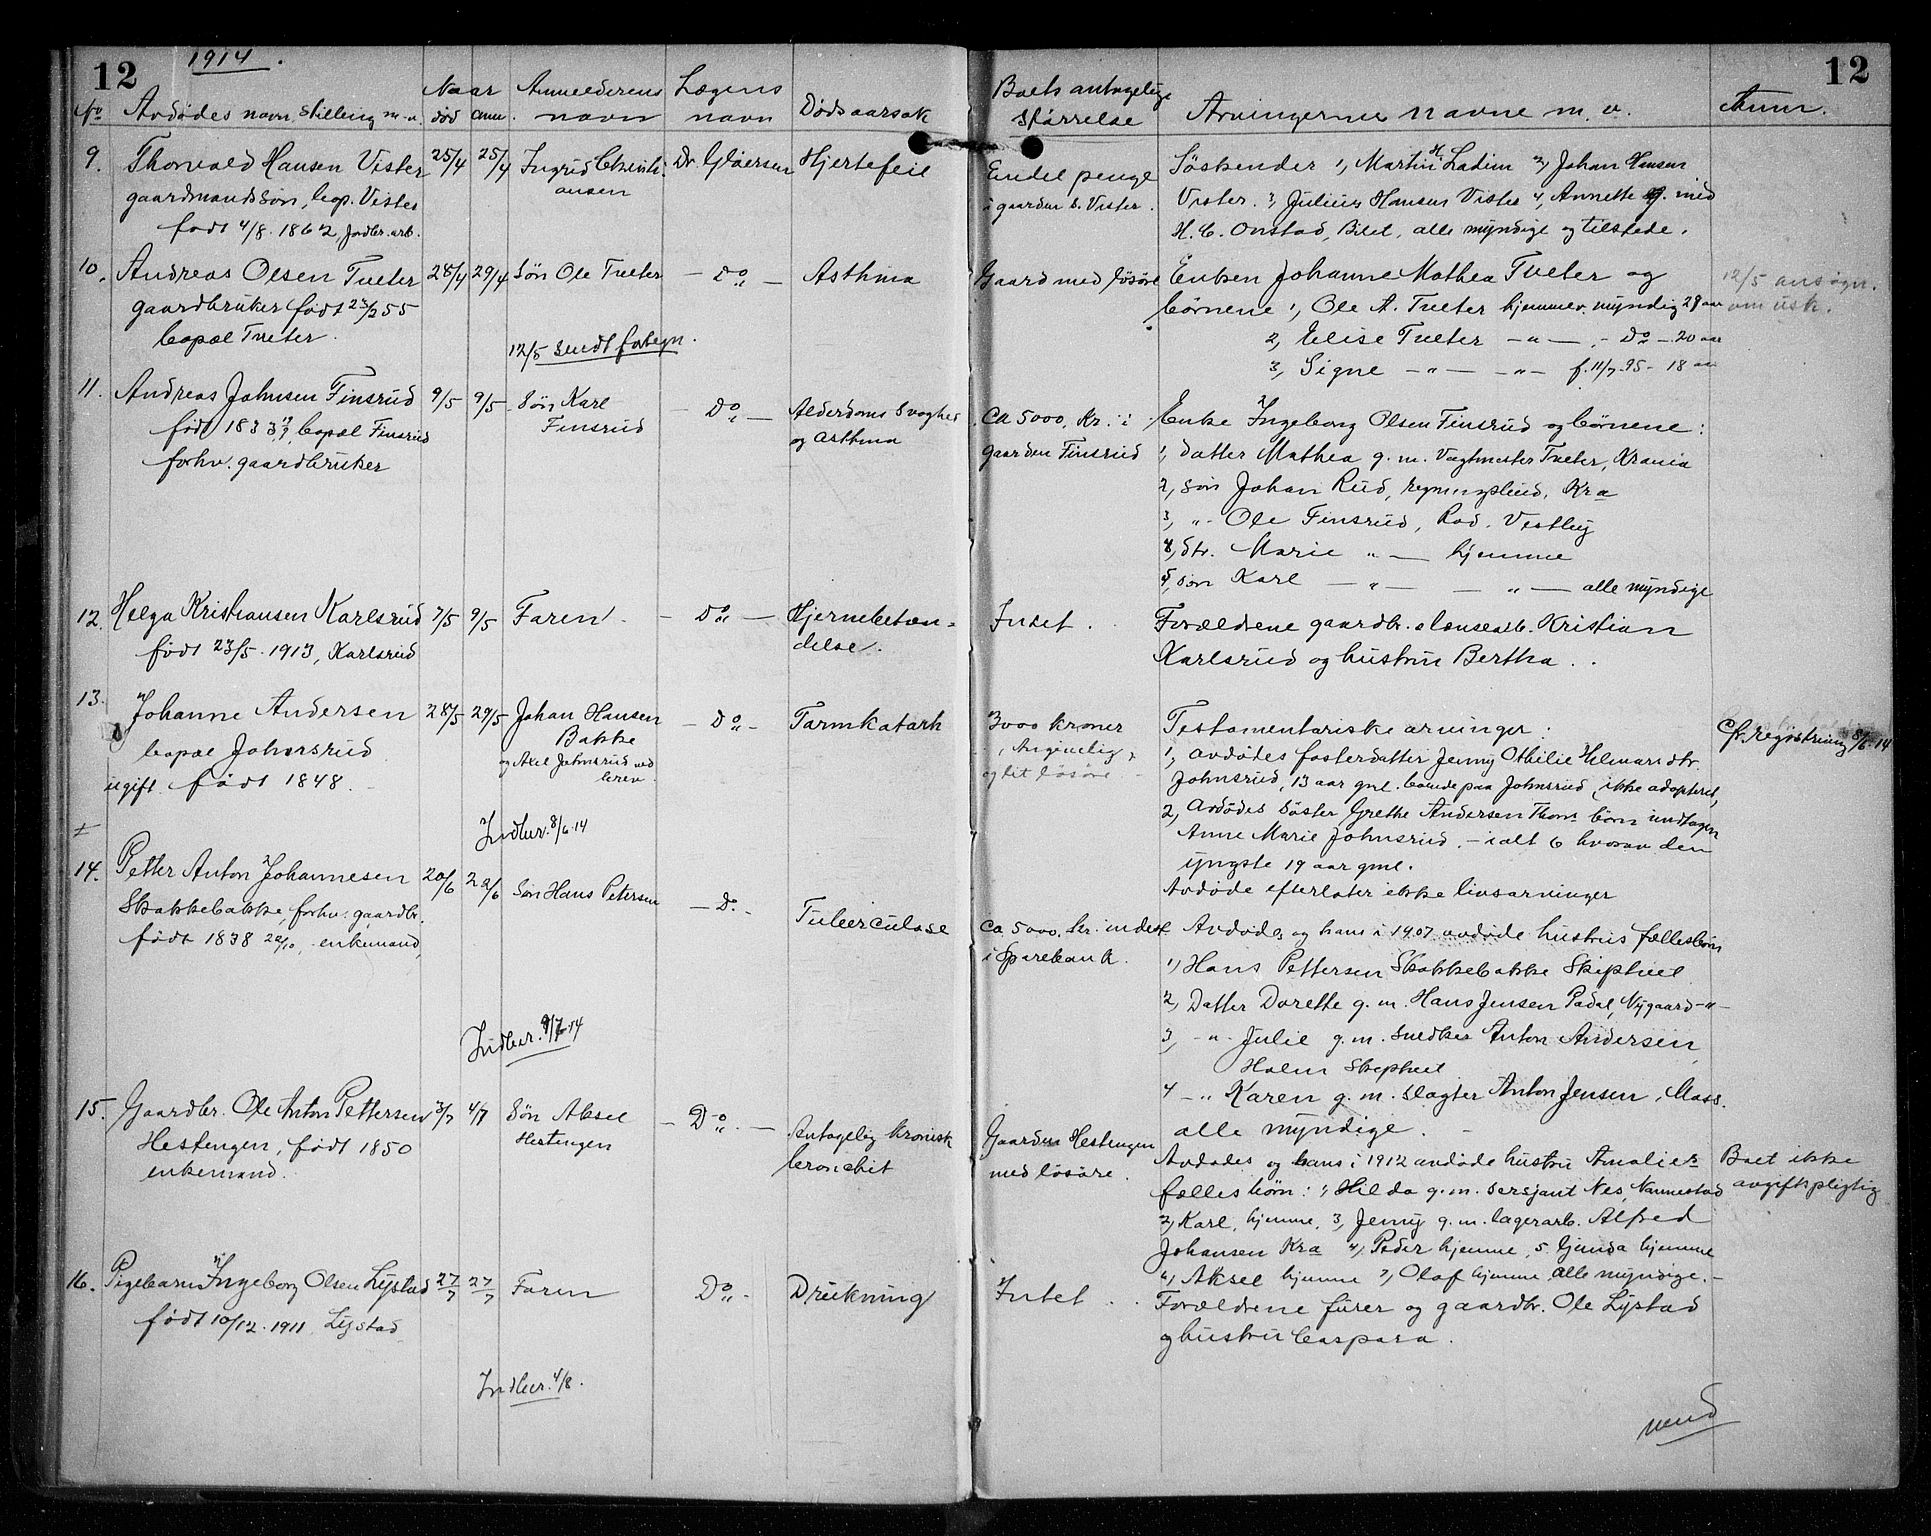 12
1914.
No
Avdødes navn, stilling m.v.
Naar
død
anm.
Anmelderens navn
Lægens navn
Dødsaarsak
Boets antagelige størrelse
Arvingernes navne m.v.
Anm.
12
9. Thorvald Hansen Vister 25/4 25/4 Ingrid Christi- Dr. Gløersen Hjertefeil
gaardmandssøn, bop. Vister ansen
født 4/8 1862, Jordbr.arb.
Endel penge
i gaarden s. Vister.
Søskender 1, Martin H. Ladim 2, Johan Hansen
Vister. 3, Julius Hansen Vister 4, Annette g. med
H. C. Onstad, Bilet, alle myndige og tilstede.
10. Andreas Olsen Tveter 28/4 29/4 Søn Ole Tveter — Do — Asthma
gaardbruker født 23/2 55
bopæl Tveter.
12/5 sendt fortegn.
Gaard med løsøre
Enken Johanne Mathea Tveter og
børnene 1, Ole A. Tveter hjemmev. myndig 29 aar
2, Elise Tveter — " — - Do — 20 aar
3, Signe — " — — " — f. 11/7 95 - 18 aar
12/5 ansøgn.
om usk.
11. Andreas Johnsen Finsrud 9/5 9/5 Søn Karl — Do — Alderdoms svaghet
født 1833, bopæl Finsrud Finsrud og asthma
forhv. gaardbruker
Ca 5000, Kr. i
gaarden Finsrud
Enke Ingeborg Olsen Finsrud og børnene:
1, Datter Mathea g. m. Vagtmester Tveter, Krania
2, søn Johan Rud, Kra
3, " - Ole Finsrud, Rød, Vestby
4, dtr. Marie " — hjemme
5, søn Karl — " — — " — alle myndige
12. Helga Kristiansen Karlsrud 7/5 9/5 Faren — Do — Hjernebetæn-
født 23/5 1913, Karlsrud delse.
Intet.
Forældrene gaardbr. Kristian
Karlsrud og hustru Bertha.
13. Johanne Andersen 28/5 29/5 Johan Hansen — Do - Tarmkatarh
bopæl Johnsrud Bakke
ugift født 1848. og Axel Johnsrud ved
Indber. 8/6 14
3000 kroner
og lit løsøre
Testamentariske arvinger:
1, avdødes fosterdatter Jenny Othilie Helmersdtr.
Johnsrud, 13 aar gml. boende paa Johnsrud, ikke adopteret,
2, Avdødes søster Grethe Andersen Thoms børn undtagen
Anne Marie Johnsrud. - ialt 6 hvorav den
yngste 19 aar gml.
Avdøde efterlater ikke livsarvinger
Cfr. Registrering 8/6 14
14. Petter Anton Johannesen 20/6 22/6 Søn Hans Petersen — Do - Tuberculose
Skakkebakke, forhv. gaardbr.
født 1838 20/10, enkemand,
Indber. 9/7 14
Ca 5000, kr. indest.
i Sparebank.
Avdødes og hans i 1907 avdøde hustrus fællesbørn
1, Hans Pettersen Skakkebakke Skiptvet
2, Datter Dorette g. m. Hans Jensen Padal, Nygaard - " -
3, - " - Julie g. m. snedker Anton Andersen
Holm Skiptvet
4 - " - Karen g. m. slagter Anton Jensen, Moss.
alle myndige.
15. Gaardbr. Ole Anton Pettersen 3/7 4/7 Søn Aksel — Do. — Antagelig kronisk
Hestengen, født 1850 Hestengen bronchit
enkemand.
Gaarden Hestengen
med løsøre.
Avdødes og hans i 1912 avdøde hustru Amalies
fællesbørn: 1, Hilda g. m. sersjant Nes, Nannestad
2, Karl, hjemme, 3, Jenny g. m. lagerarb. Alfred
Johansen Kra 4, Peder hjemme, 5, Gunda hjemme
6, Aksel hjemme 7, Olaf hjemme, alle myndige. -
Boet ikke
avgiftspligtig
16. Pigebarn Ingeborg Olsen Lystad 27/7 27/7 Faren Do - Drukning
født 10/12 1911 Lystad
Indber. 4/8.
Intet..
Forældrene furer og gaardbr. Ole Lystad
og hustru Caspara.
vend